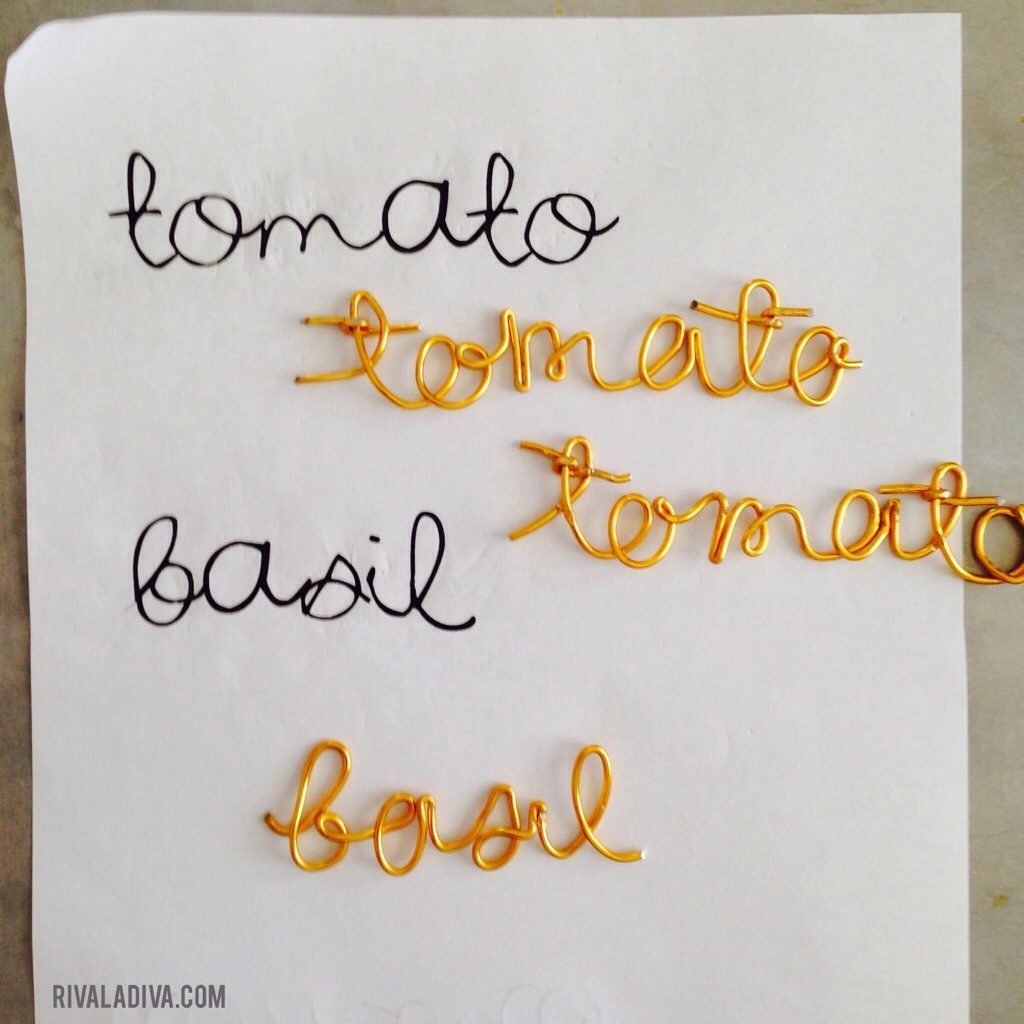 tomato
tomato
tomato
basil
basil
RIVALADIVA.COM